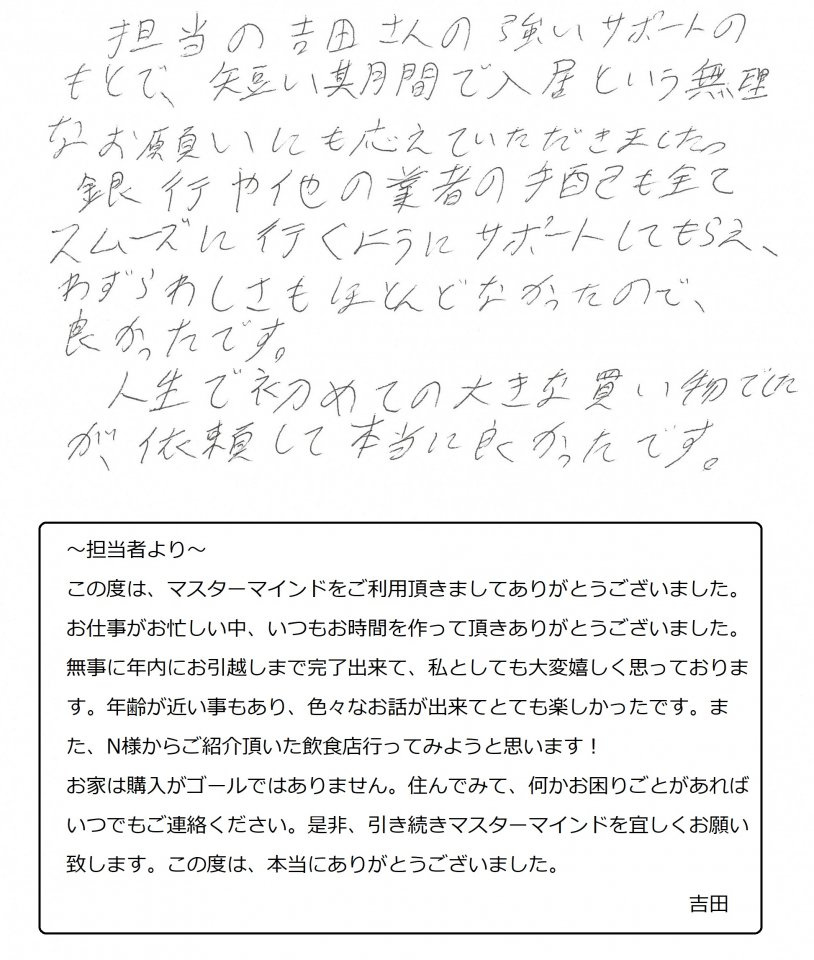 担当の吉田さんの強いサポートの
もとで、短い期間で入居という無理
なお願いにも応えていただきました。
銀行や他の業者の手配も全て
スムーズに行くようにサポートしてもらえ、
わずらわしさもほとんどなかったので、
良かったです。
人生で初めての大きな買い物でした
が、依頼して本当に良かったです。
～担当者より～
この度は、マスターマインドをご利用頂きましてありがとうございました。
お仕事がお忙しい中、いつもお時間を作って頂きありがとうございました。
無事に年内にお引越しまで完了出来て、私としても大変嬉しく思っておりま
す。年齢が近い事もあり、色々なお話が出来てとても楽しかったです。ま
た、N様からご紹介頂いた飲食店行ってみようと思います！
お家は購入がゴールではありません。住んでみて、何かお困りごとがあれば
いつでもご連絡ください。是非、引き続きマスターマインドを宜しくお願い
致します。この度は、本当にありがとうございました。
吉田